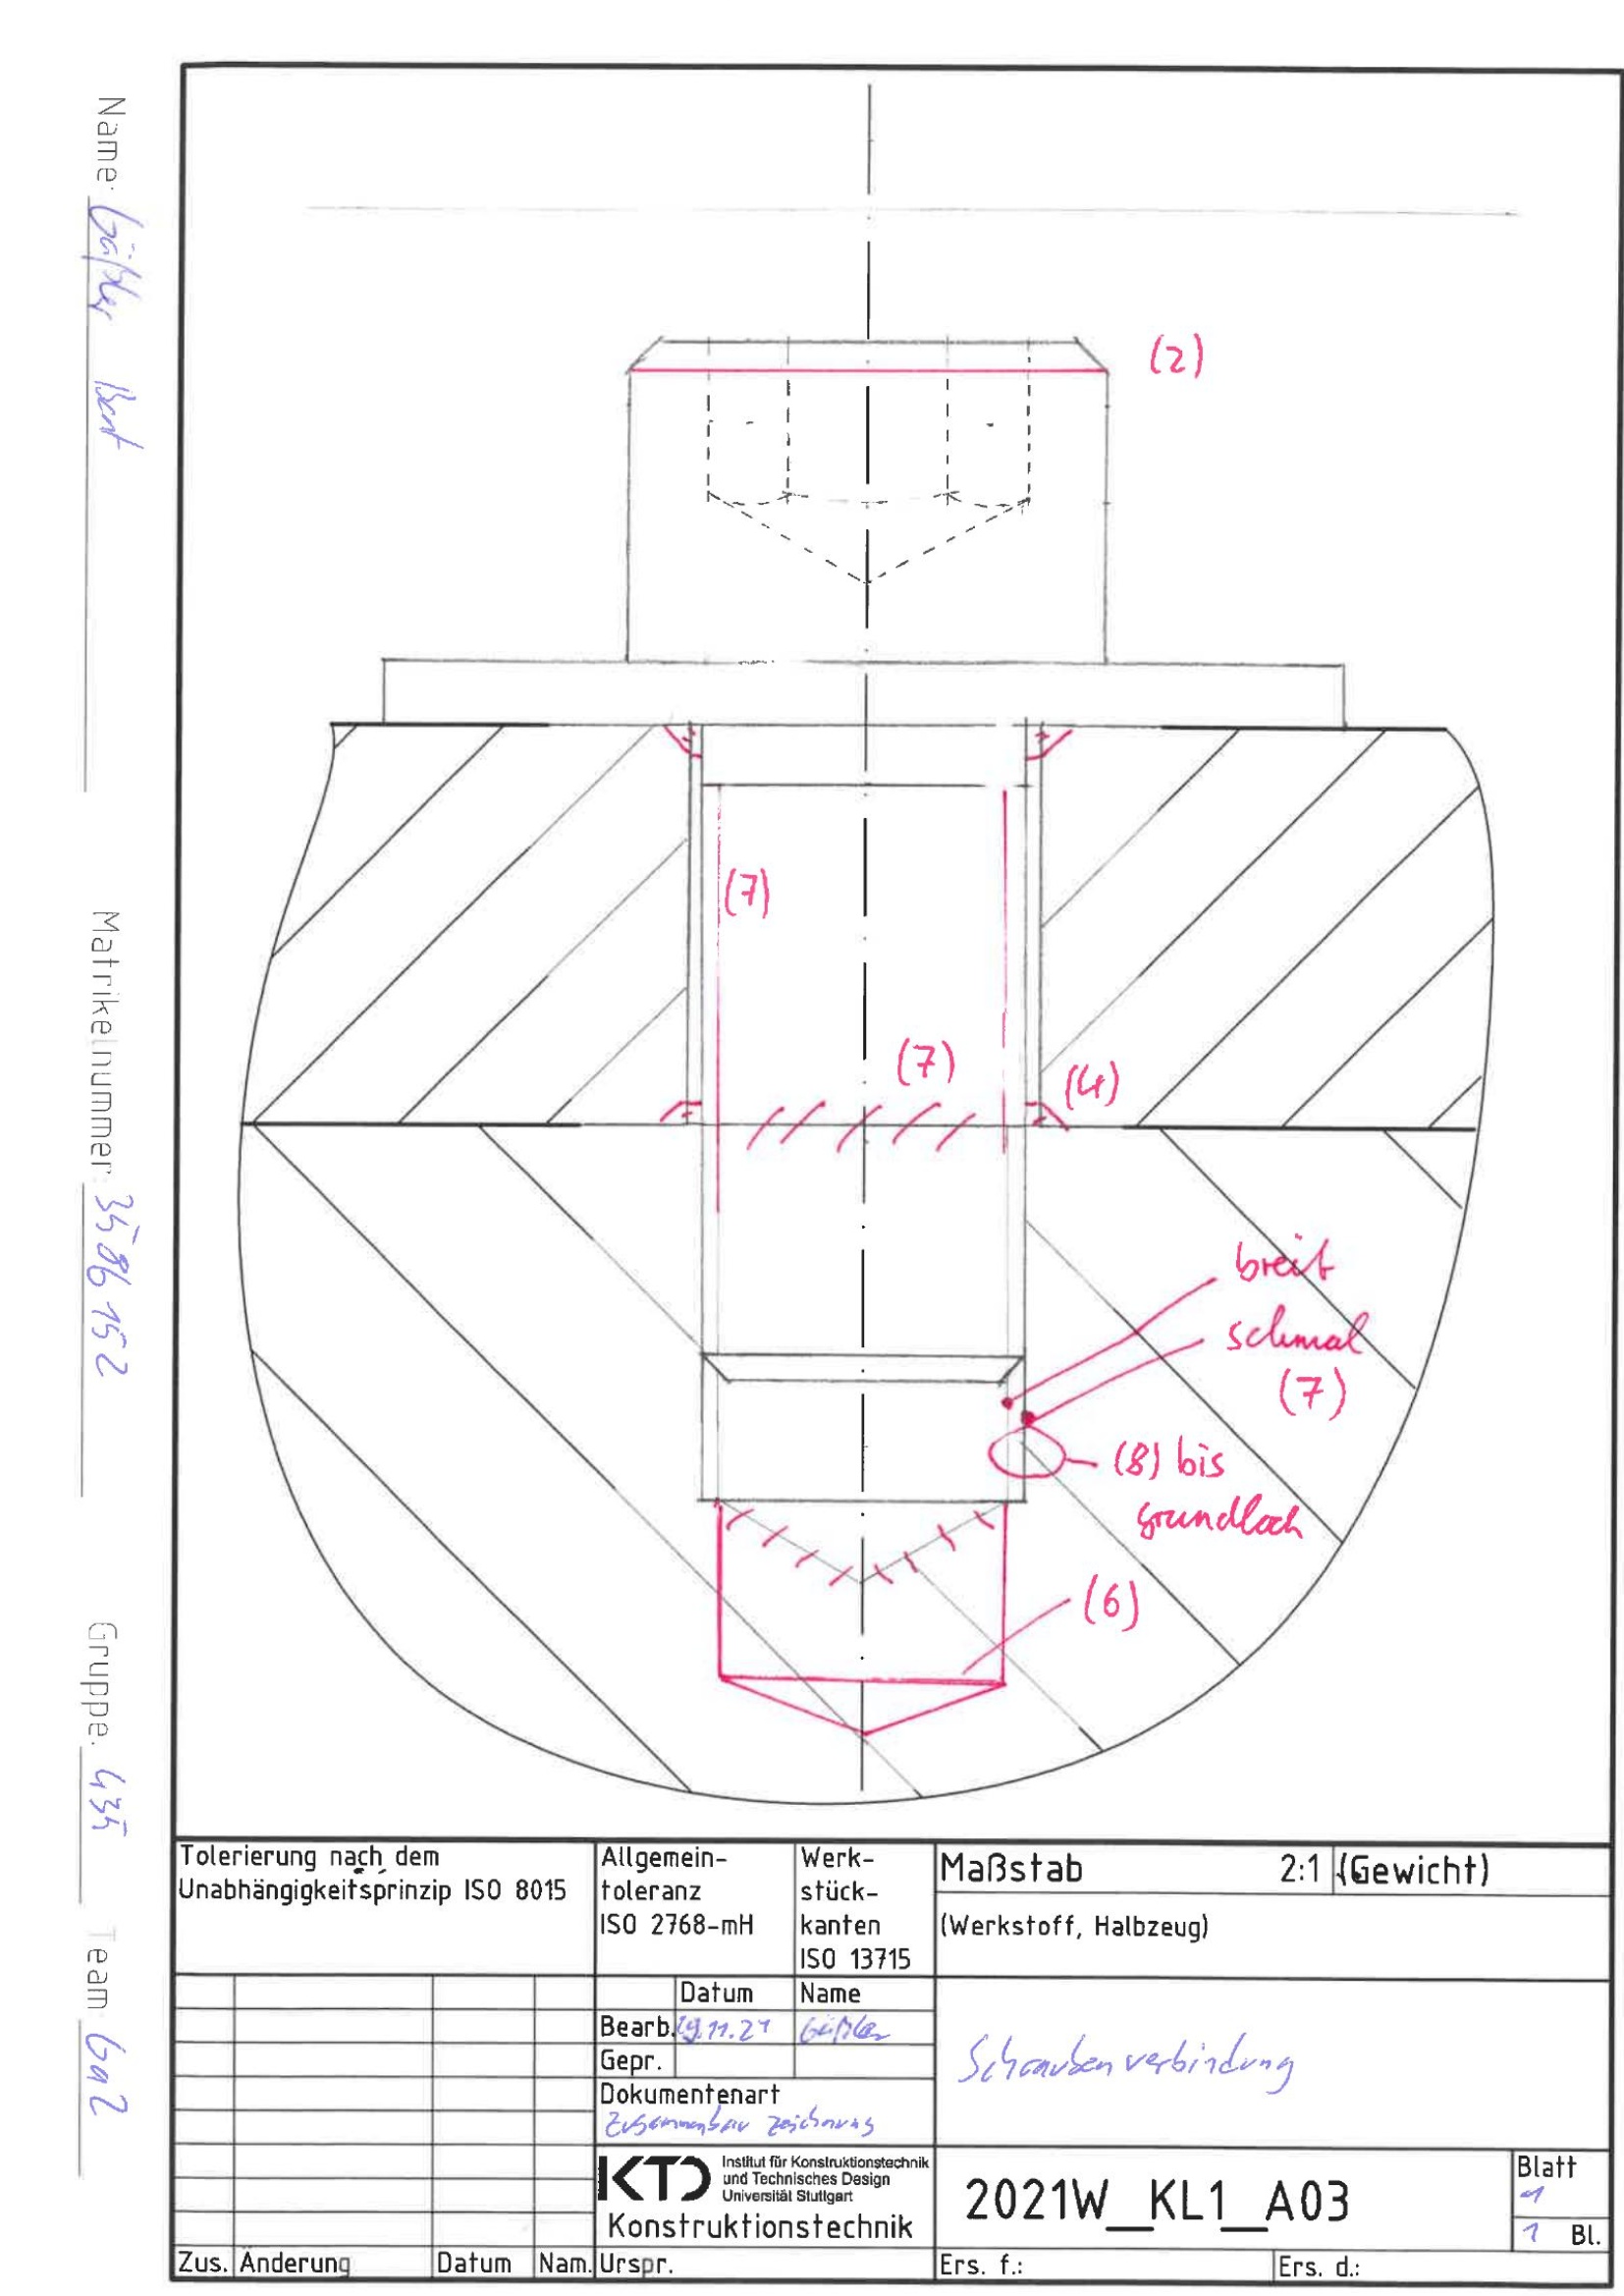 Name:
Matrikelnummer: 3586152
Gruppe. 435
Team Ga2
(2)
(7)
(7)
(4)
breit
schmal
(7)
(8) bis
grundloch
(6)
Tolerierung nach dem
Unabhängigkeitsprinzip ISO 8015
Allgemein-
toleranz
ISO 2768-mH
Werk-
stück-
kanten
ISO 13715
Maßstab 2:1 (Gewicht)
(Werkstoff, Halbzeug)
Datum Name
Bearb. 29.11.21
Gepr.
Dokumentenart
Zusammenbau zeichnung
Schraubenverbindung
KTD Institut für Konstruktionstechnik
und Technisches Design
Universität Stuttgart
Konstruktionstechnik
2021W_KL1_A03
Blatt
1
1 Bl.
Zus. Änderung Datum Nam. Urspr. Ers. f.: Ers. d.: